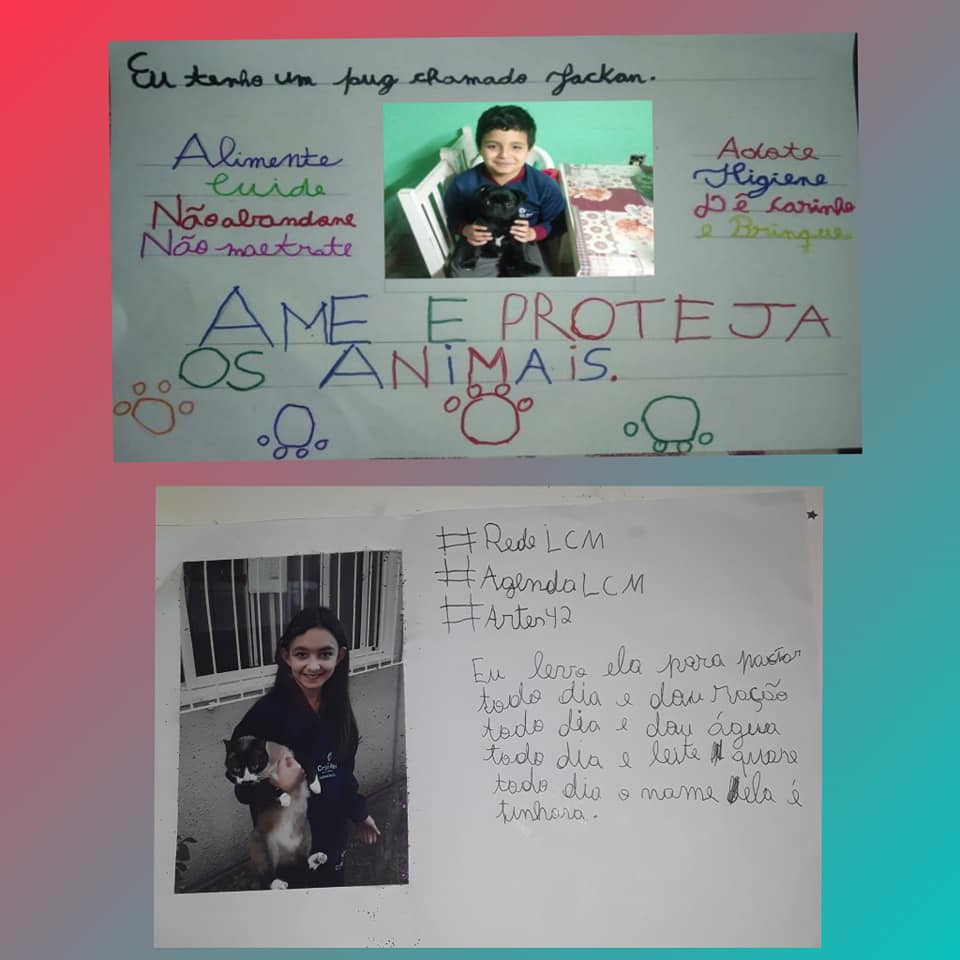 Eu tenho um pug chamado Jackan.
Alimente
Cuide
Não abandone
Não maetrate
Adote
Higiene
Dê carinho
e Brinque
AME E PROTEJA
OS ANiMAiS.
#RedeLCM
#AgendaLCM
#Artes42
Eu levo ela para pastar
todo dia e dou ração
todo dia e dou água
todo dia e leite quase
todo dia o name dela é
tinhosa.